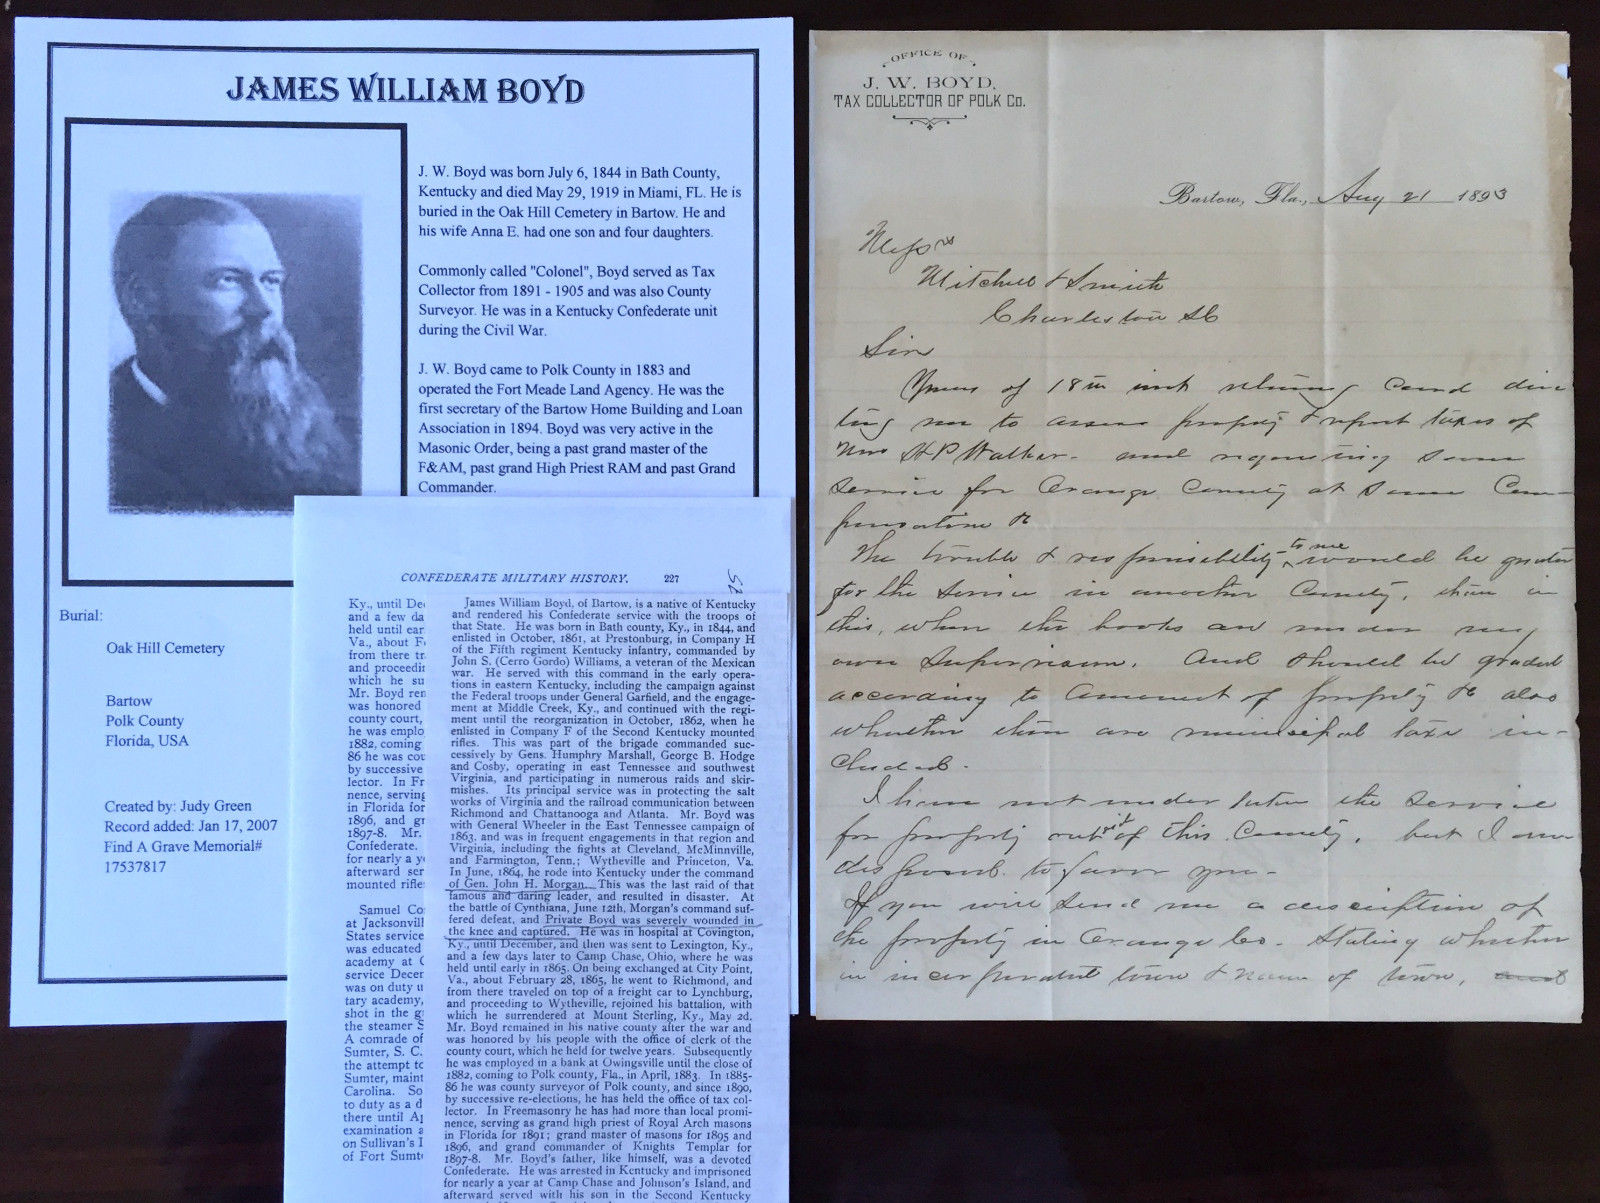 JAMES WILLIAM BOYD
J. W. Boyd was born July 6, 1844 in Bath County,
Kentucky and died May 29, 1919 in Miami, FL. He is
buried in the Oak Hill Cemetery in Bartow. He and
his wife Anna E. had one son and four daughters.
Commonly called "Colonel", Boyd served as Tax
Collector from 1891 - 1905 and was also County
Surveyor. He was in a Kentucky Confederate unit
during the Civil War.
J. W. Boyd came to Polk County in 1883 and
operated the Fort Meade Land Agency. He was the
first secretary of the Bartow Home Building and Loan
Association in 1894. Boyd was very active in the
Masonic Order, being a past grand master of the
F&AM, past grand High Priest RAM and past Grand
Commander.
Burial:
Oak Hill Cemetery
Bartow
Polk County
Florida, USA
Created by: Judy Green
Record added: Jan 17, 2007
Find A Grave Memorial#
17537817
CONFEDERATE MILITARY HISTORY. 227
Ky., until De
and a few da
held until ear
Va., about F
from there tr
and proceedin
which he su
Mr. Boyd ren
was honored
county court,
he was emplo
1882, coming
86 he was cou
by successive
lector. In Fr
nence, serving
in Florida for
1896, and gr
1897-8. Mr.
Confederate.
for nearly a y
afterward ser
mounted rifle
Samuel Co
at Jacksonvill
States service
was educated
academy at C
service Decer
was on duty u
tary academy,
shot in the g
the steamer S
A comrade of
Sumter, S. C.
the attempt to
Sumter, maint
Carolina. So
to duty as a d
there until Ap
examination a
on Sullivan's I
of Fort Sumt
James William Boyd, of Bartow, is a native of Kentucky
and rendered his Confederate service with the troops of
that State. He was born in Bath county, Ky., in 1844, and
enlisted in October, 1861, at Prestonburg, in Company H
of the Fifth regiment Kentucky infantry, commanded by
John S. (Cerro Gordo) Williams, a veteran of the Mexican
war. He served with this command in the early opera-
tions in eastern Kentucky, including the campaign against
the Federal troops under General Garfield, and the engage-
ment at Middle Creek, Ky., and continued with the regi-
ment until the reorganization in October, 1862, when he
enlisted in Company F of the Second Kentucky mounted
rifles. This was part of the brigade commanded suc-
cessively by Gens. Humphry Marshall, George B. Hodge
and Cosby, operating in east Tennessee and southwest
Virginia, and participating in numerous raids and skir-
mishes. Its principal service was in protecting the salt
works of Virginia and the railroad communication between
Richmond and Chattanooga and Atlanta. Mr. Boyd was
with General Wheeler in the East Tennessee campaign of
1863, and was in frequent engagements in that region and
Virginia, including the fights at Cleveland, McMinnville,
and Farmington, Tenn.; Wytheville and Princeton, Va.
In June, 1864, he rode into Kentucky under the command
of Gen. John H. Morgan. This was the last raid of that
famous and daring leader, and resulted in disaster. At
the battle of Cynthiana, June 12th, Morgan's command suf-
fered defeat, and Private Boyd was severely wounded in
the knee and captured. He was in hospital at Covington,
Ky., until December, and then was sent to Lexington, Ky.,
and a few days later to Camp Chase, Ohio, where he was
held until early in 1865. On being exchanged at City Point,
Va., about February 28, 1865, he went to Richmond, and
from there traveled on top of a freight car to Lynchburg,
and proceeding to Wytheville, rejoined his battalion, with
which he surrendered at Mount Sterling, Ky., May 2d.
Mr. Boyd remained in his native county after the war and
was honored by his people with the office of clerk of the
county court, which he held for twelve years. Subsequently
he was employed in a bank at Owingsville until the close of
1882, coming to Polk county, Fla., in April, 1883. In 1885-
86 he was county surveyor of Polk county, and since 1890,
by successive re-elections, he has held the office of tax col-
lector. In Freemasonry he has had more than local promi-
nence, serving as grand high priest of Royal Arch masons
in Florida for 1891; grand master of masons for 1895 and
1896, and grand commander of Knights Templar for
1897-8. Mr. Boyd's father, like himself, was a devoted
Confederate. He was arrested in Kentucky and imprisoned
for nearly a year at Camp Chase and Johnson's Island, and
afterward served with his son in the Second Kentucky
OFFICE OF
J. W. BOYD,
TAX COLLECTOR OF POLK Co.
Bartow, Fla., Aug 21 1893
Messrs
Mitchell & Smith
Charleston SC
Sirs
Yours of 18th inst returning card direc
ting me to assess property & report taxes of
Mrs H P Walker - and requesting same
service for Orange County at same Com-
pensation &c
The trouble & responsibility to me would be greater
for the service in another County, than in
this, where the books are under my
own supervision. And should be graded
according to amount of property &c also
whether there are municipal taxes in-
cluded -
I have not undertaken the service
for property outside of this County, but I am
disposed to favor you -
If you will send me a description of
the property in Orange Co - Stating whether
in incorporated town & name of town,